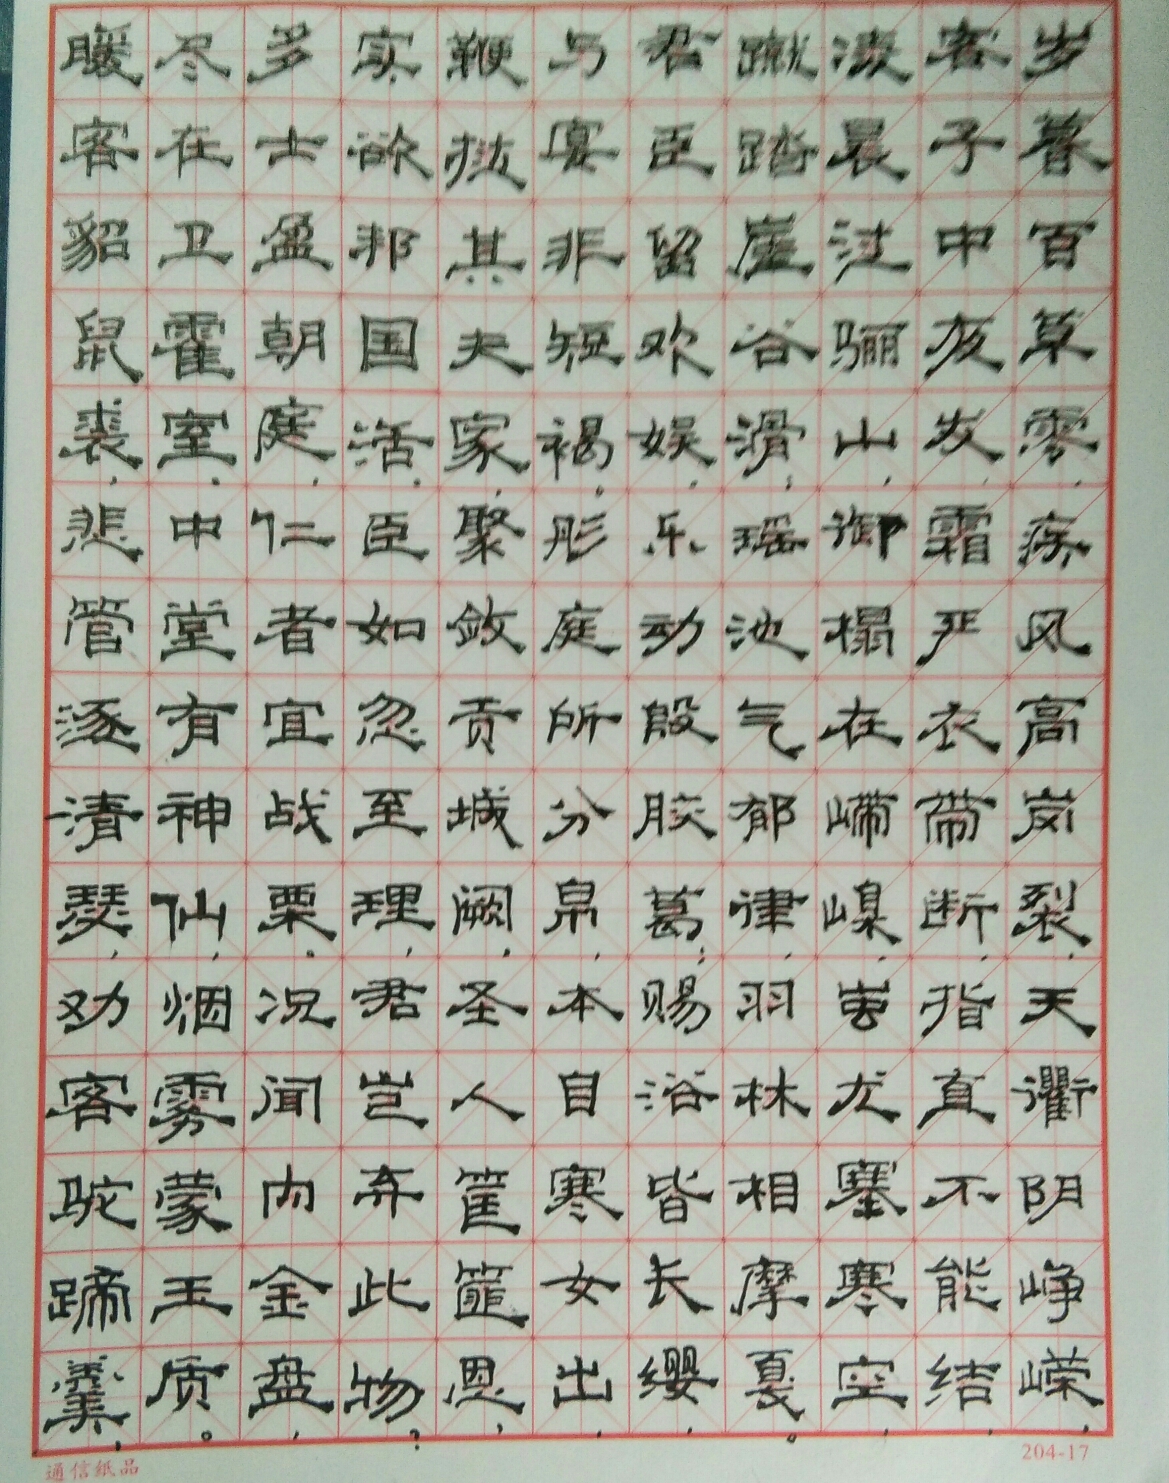 岁暮百草零,疾风高岗裂,天衢阴峥嵘,
客子中夜发霜严衣带断,指直不能结
凌晨过骊山,御榻在嵽嵲,蚩尤塞寒空,
蹴踏崖谷滑;瑶池气郁律,羽林相摩戛。
君臣留欢娱,乐动殷胶葛;赐浴皆长缨,
与宴非短褐。彤庭所分帛,本自寒女出,
鞭挞其夫家,聚敛贡城阙,圣人筐篚恩,
实欲邦国活。臣如忽至理,君岂弃此物?
多士盈朝庭,仁者宜战栗。况闻内金盘,
尽在卫霍室。中堂有神仙,烟雾蒙玉质。
暖客貂鼠裘,悲管逐清瑟,劝客驼蹄羹,
204-17
通信纸品